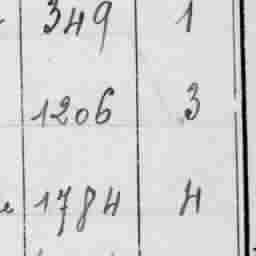 349 1
1206 3
1784 4